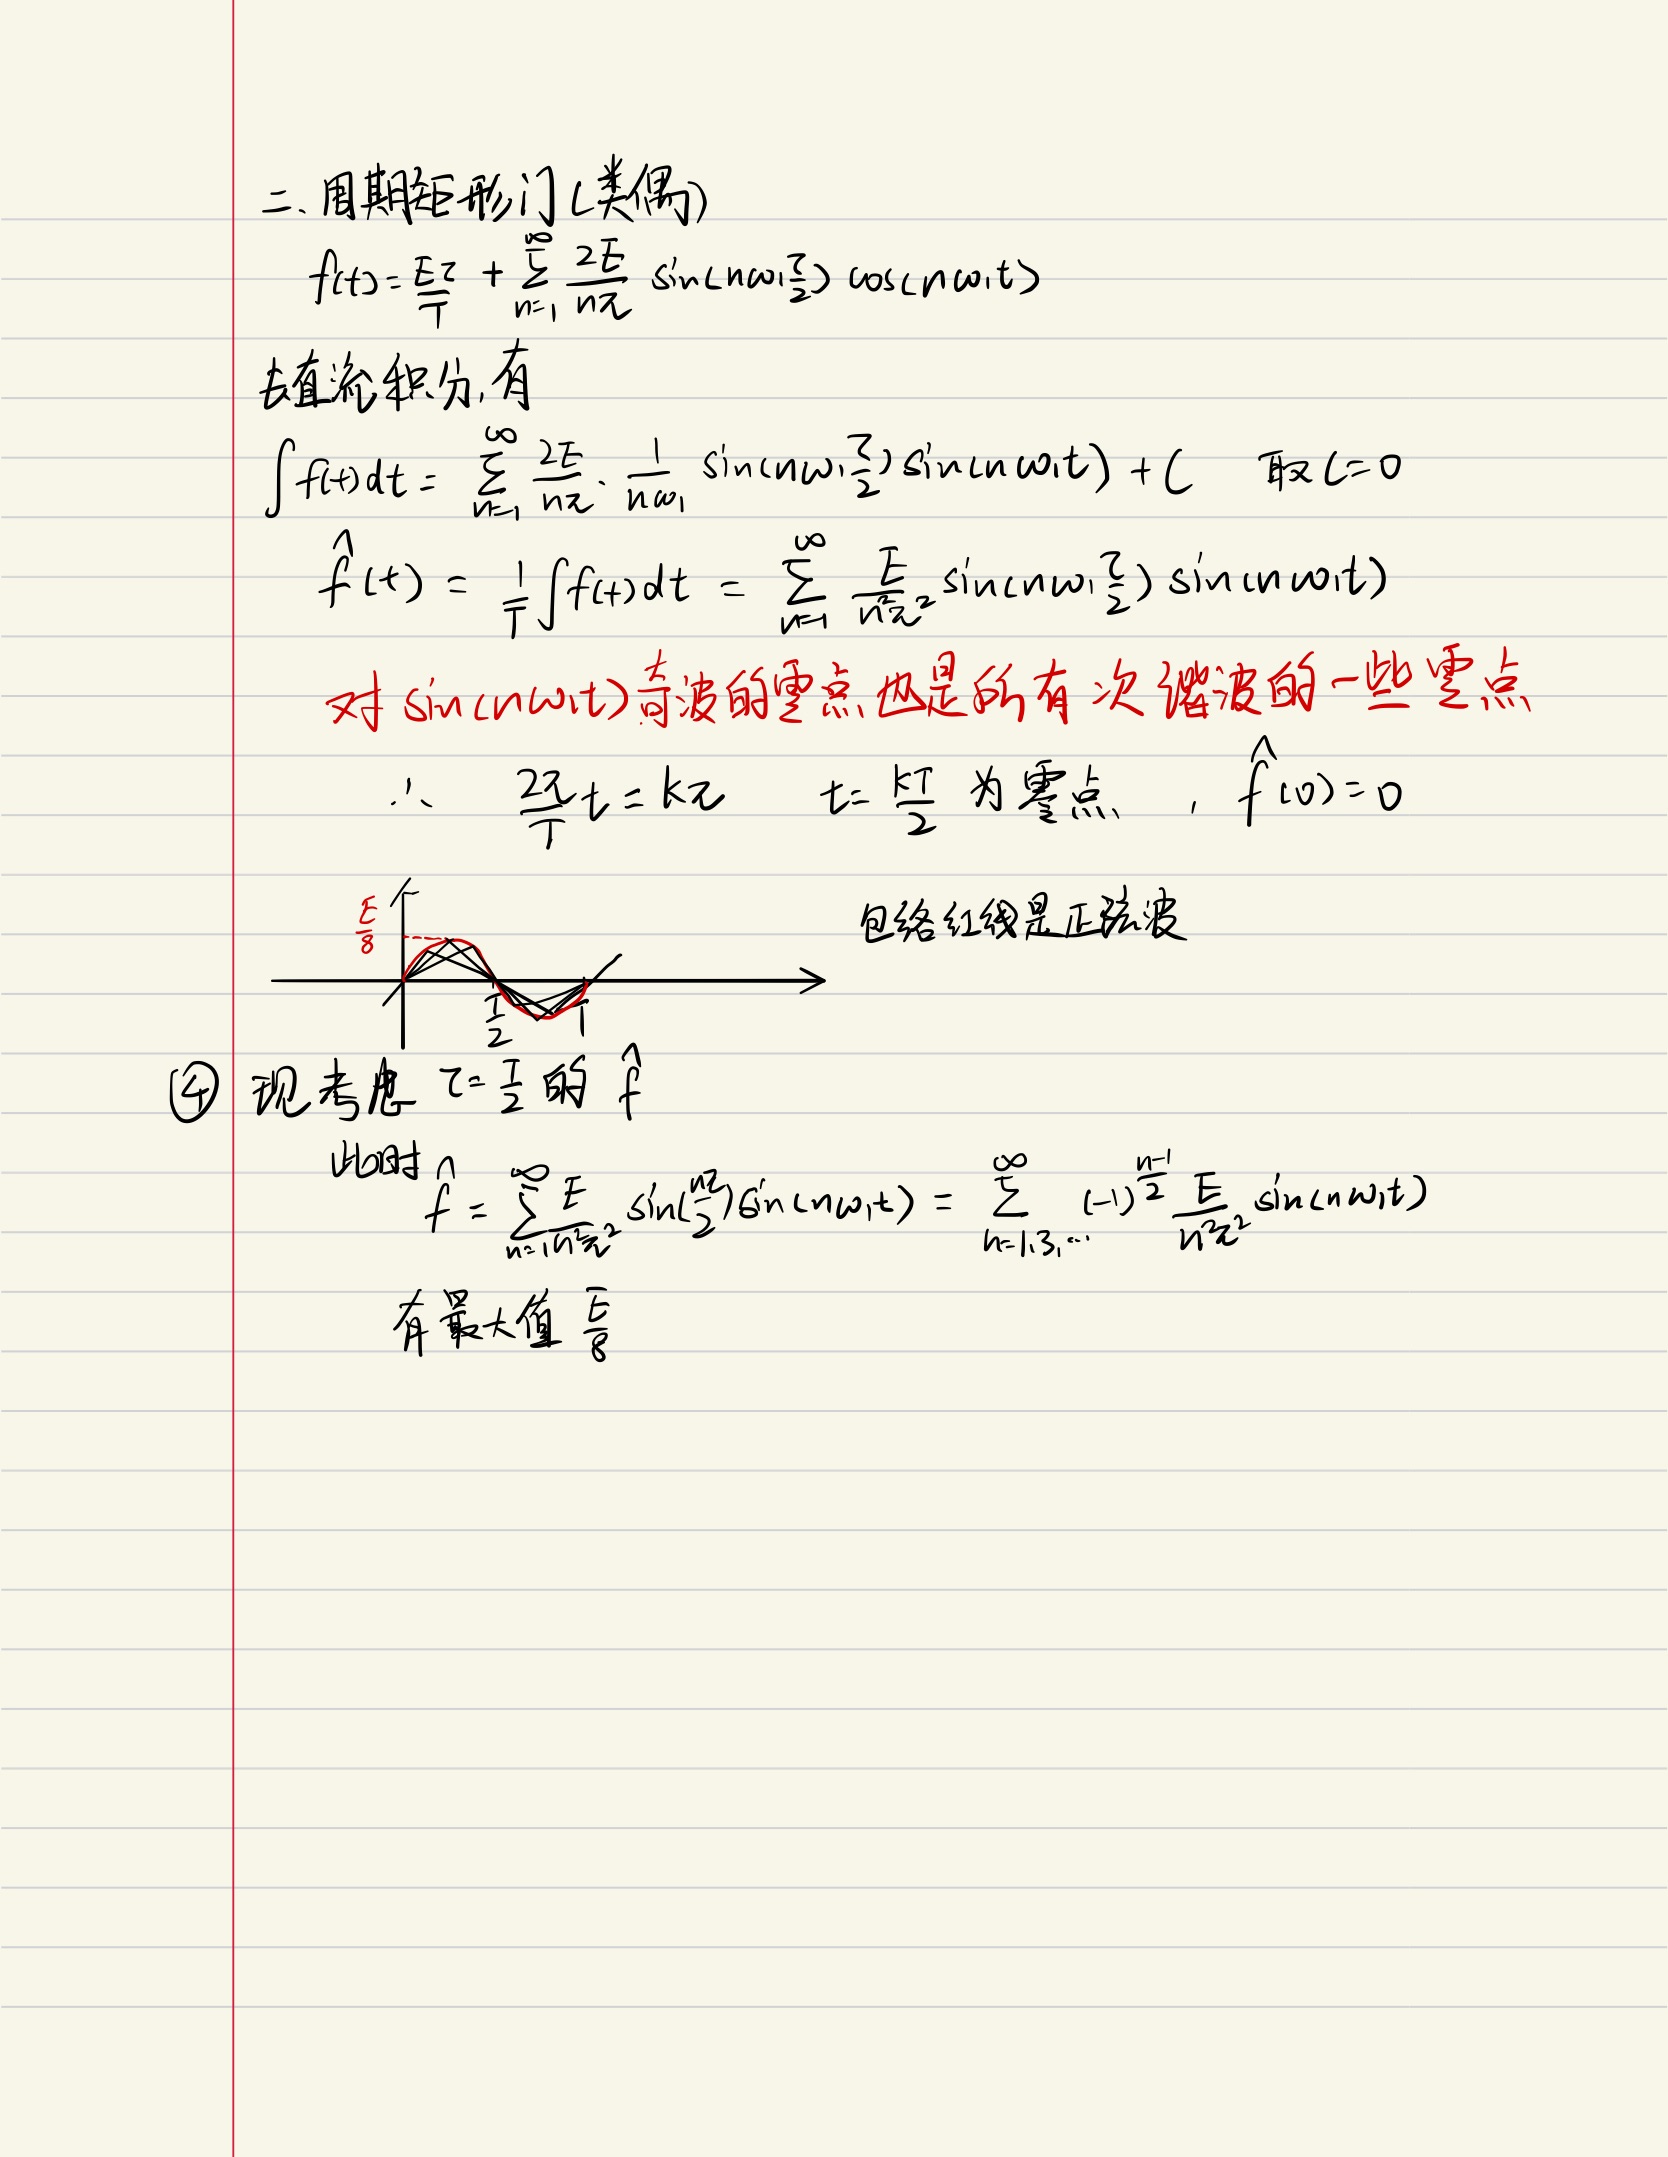 二、周期矩形门(类偶)
f(t)=Eτ/T + ∑_{n=1}^{∞} 2E/nπ sin(nω₁τ/2) cos(nω₁t)
去直流积分,有
∫f(t)dt = ∑_{n=1}^{∞} 2E/nπ · 1/nω₁ sin(nω₁τ/2) sin(nω₁t) + C 取C=0
f̂(t) = 1/T ∫f(t)dt = ∑_{n=1}^{∞} E/n²π² sin(nω₁τ/2) sin(nω₁t)
对sin(nω₁t)奇波的零点也是所有次谐波的一些零点
∴ 2π/T t = kπ t=kT/2 为零点, f̂(0)=0
E/8
包络红线是正弦波
T/2 T
④ 现考虑 τ=T/2 的 f̂
此时 f̂ = ∑_{n=1}^{∞} E/n²π² sin(nπ/2) sin(nω₁t) = ∑_{n=1,3,…}^{∞} (-1)^{(n-1)/2} E/n²π² sin(nω₁t)
有最大值 E/8